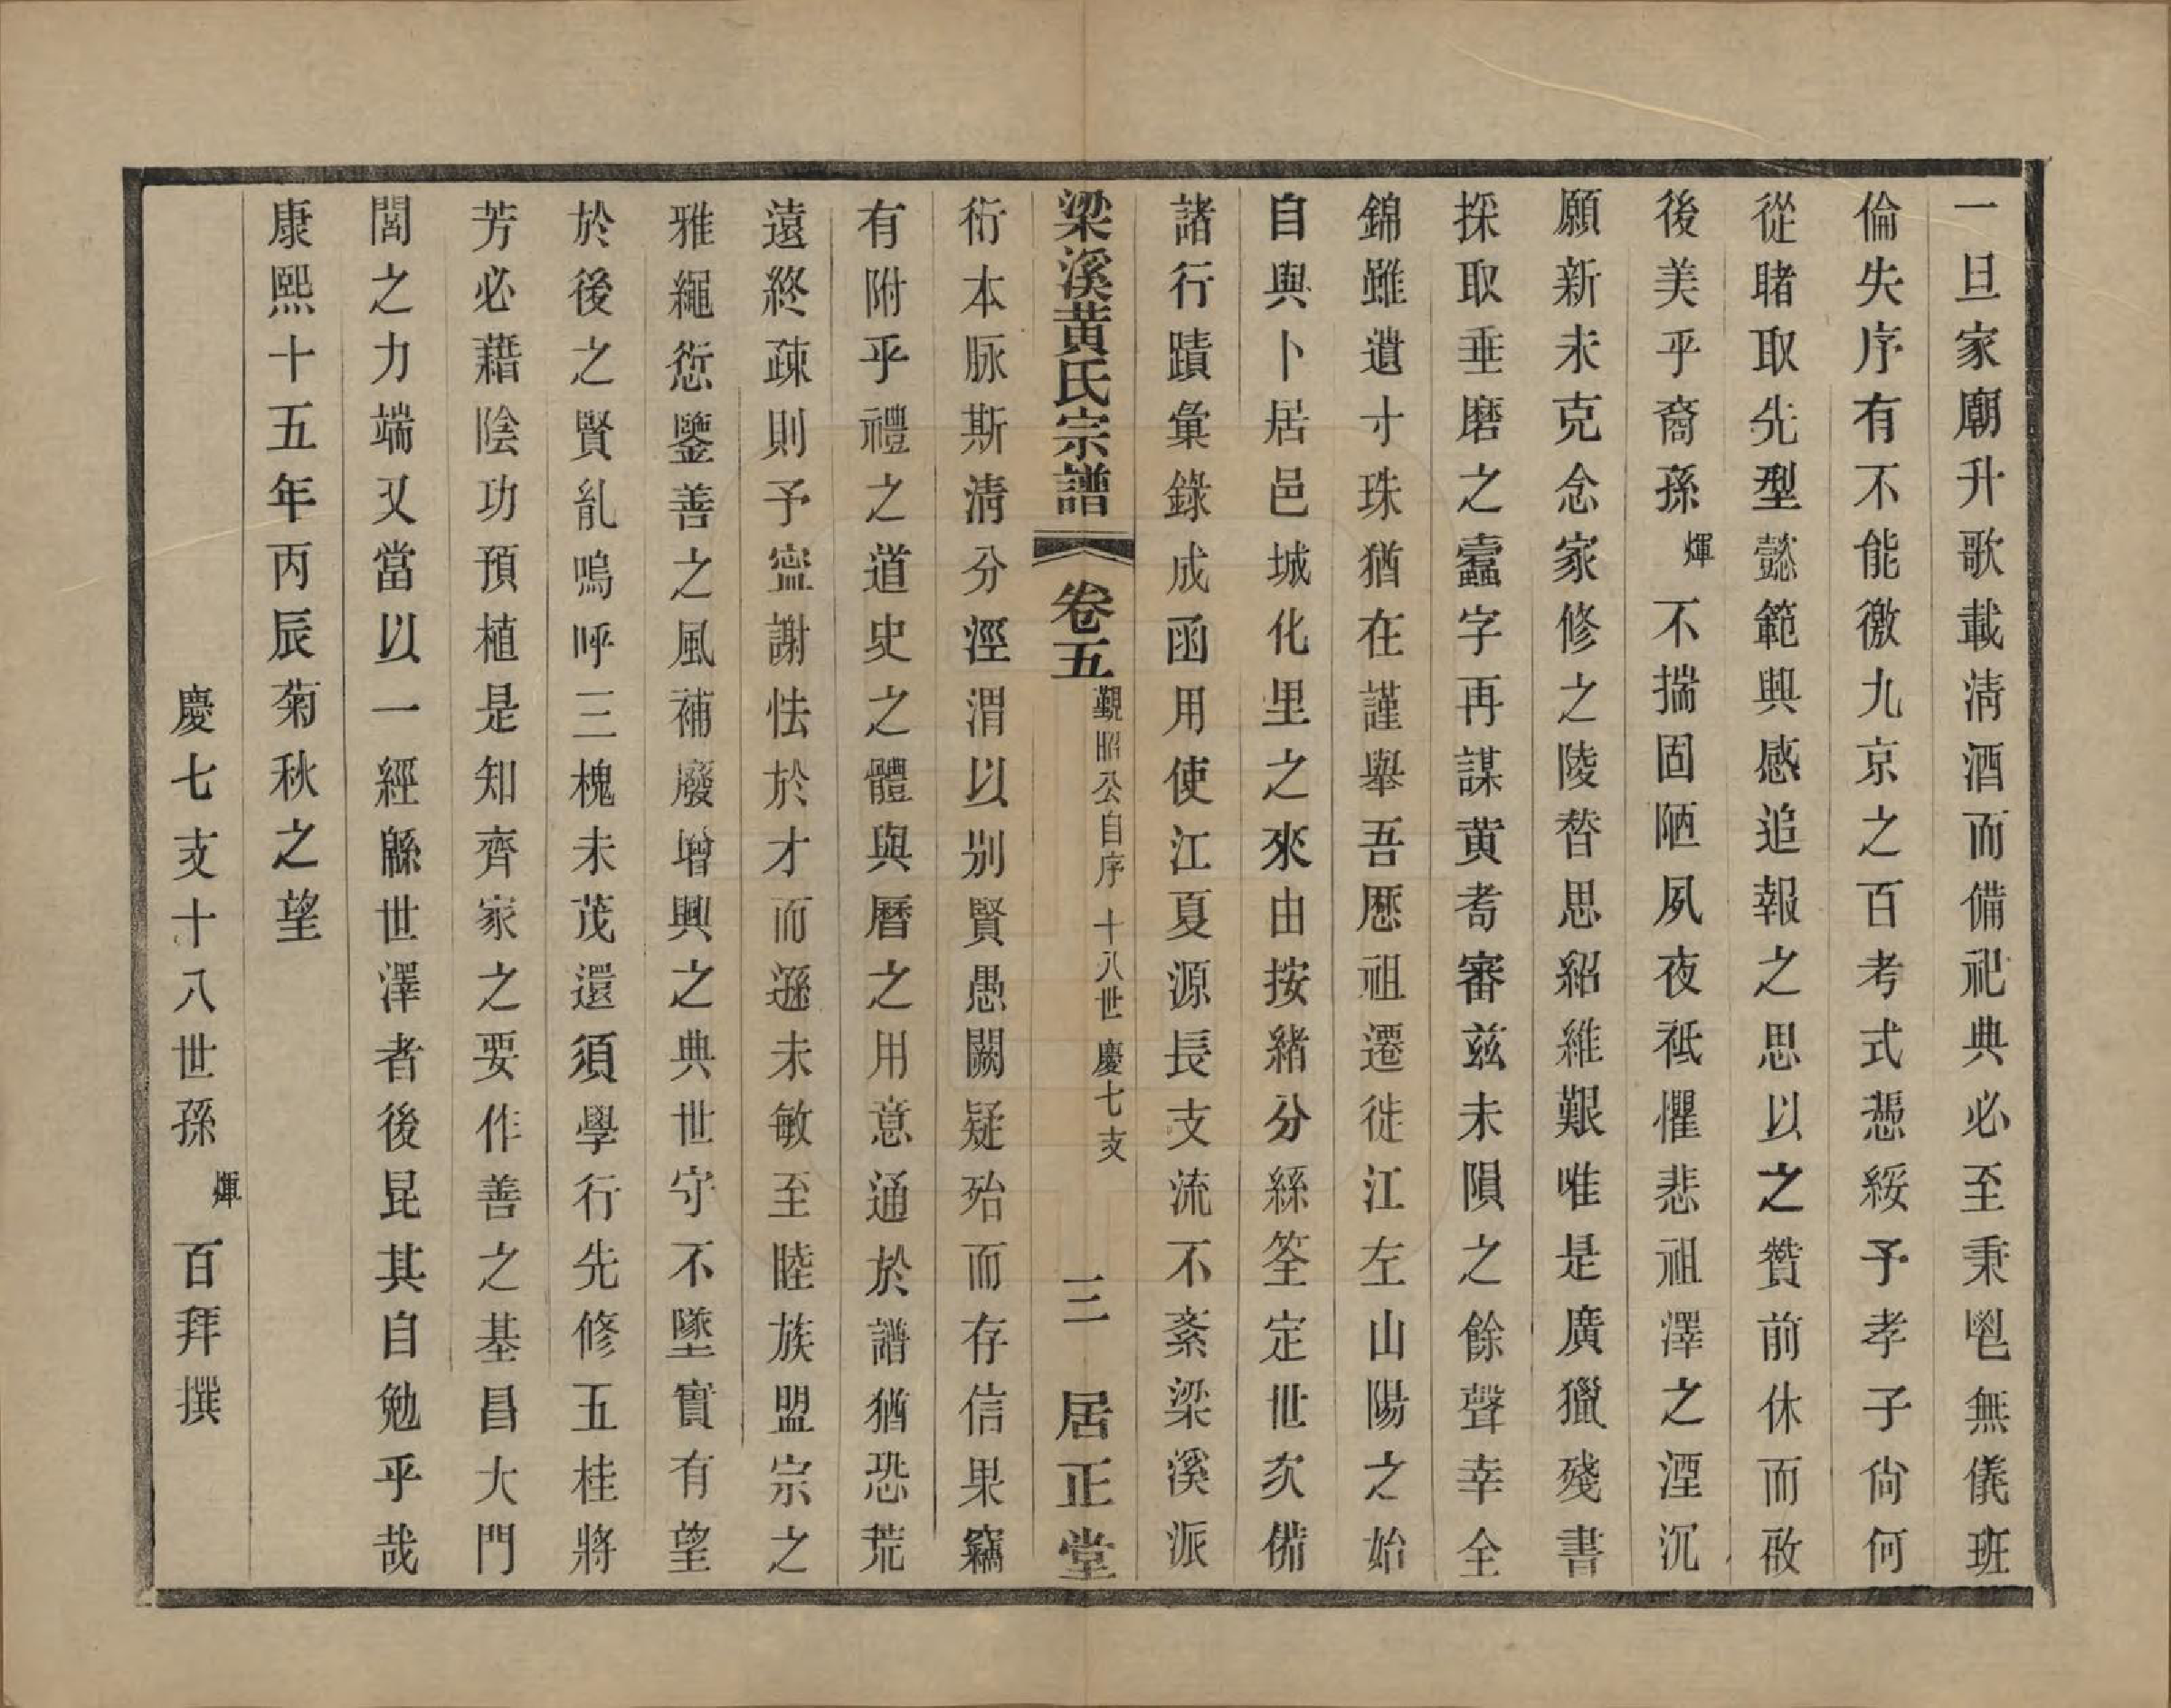 一旦家廟升歌載淸酒而備祀典必至秉鬯無儀班
倫失序有不能徼九京之百考式憑綏予孝子尙何
從睹取先型懿範與感追報之思以之贊前休而啟
後美乎裔孫煇不揣固陋夙夜祗懼悲祖澤之湮沉
願新未克念家修之陵替思紹維艱唯是廣獵殘書
採取垂磨之蠹字再謀黄耇審兹未隕之餘聲幸全
錦雖遺寸珠猶在謹舉吾歷祖遷徙江左山陽之始
自與卜居邑城化里之來由按緒分絲筌定世次備
諸行蹟彙錄成函用使江夏源長支流不紊梁溪派
梁溪黄氏宗譜 卷五 覲昭公自序 十八世 慶七支 三 居正堂
衍本脉斯淸分涇渭以别賢愚闕疑殆而存信果竊
有附乎禮之道史之體與曆之用意通於譜猶恐荒
遠終疎則予寍謝怯於才而遜未敏至睦族盟宗之
雅繩愆鑒善之風補廢增興之典世守不墜實有望
於後之賢亂嗚呼三槐未茂還須學行先修五桂將
芳必藉陰功預植是知齊家之要作善之基昌大門
閭之力端又當以一經緜世澤者後昆其自勉乎哉
康熙十五年丙辰菊秋之望
慶七支十八世孫煇百拜撰